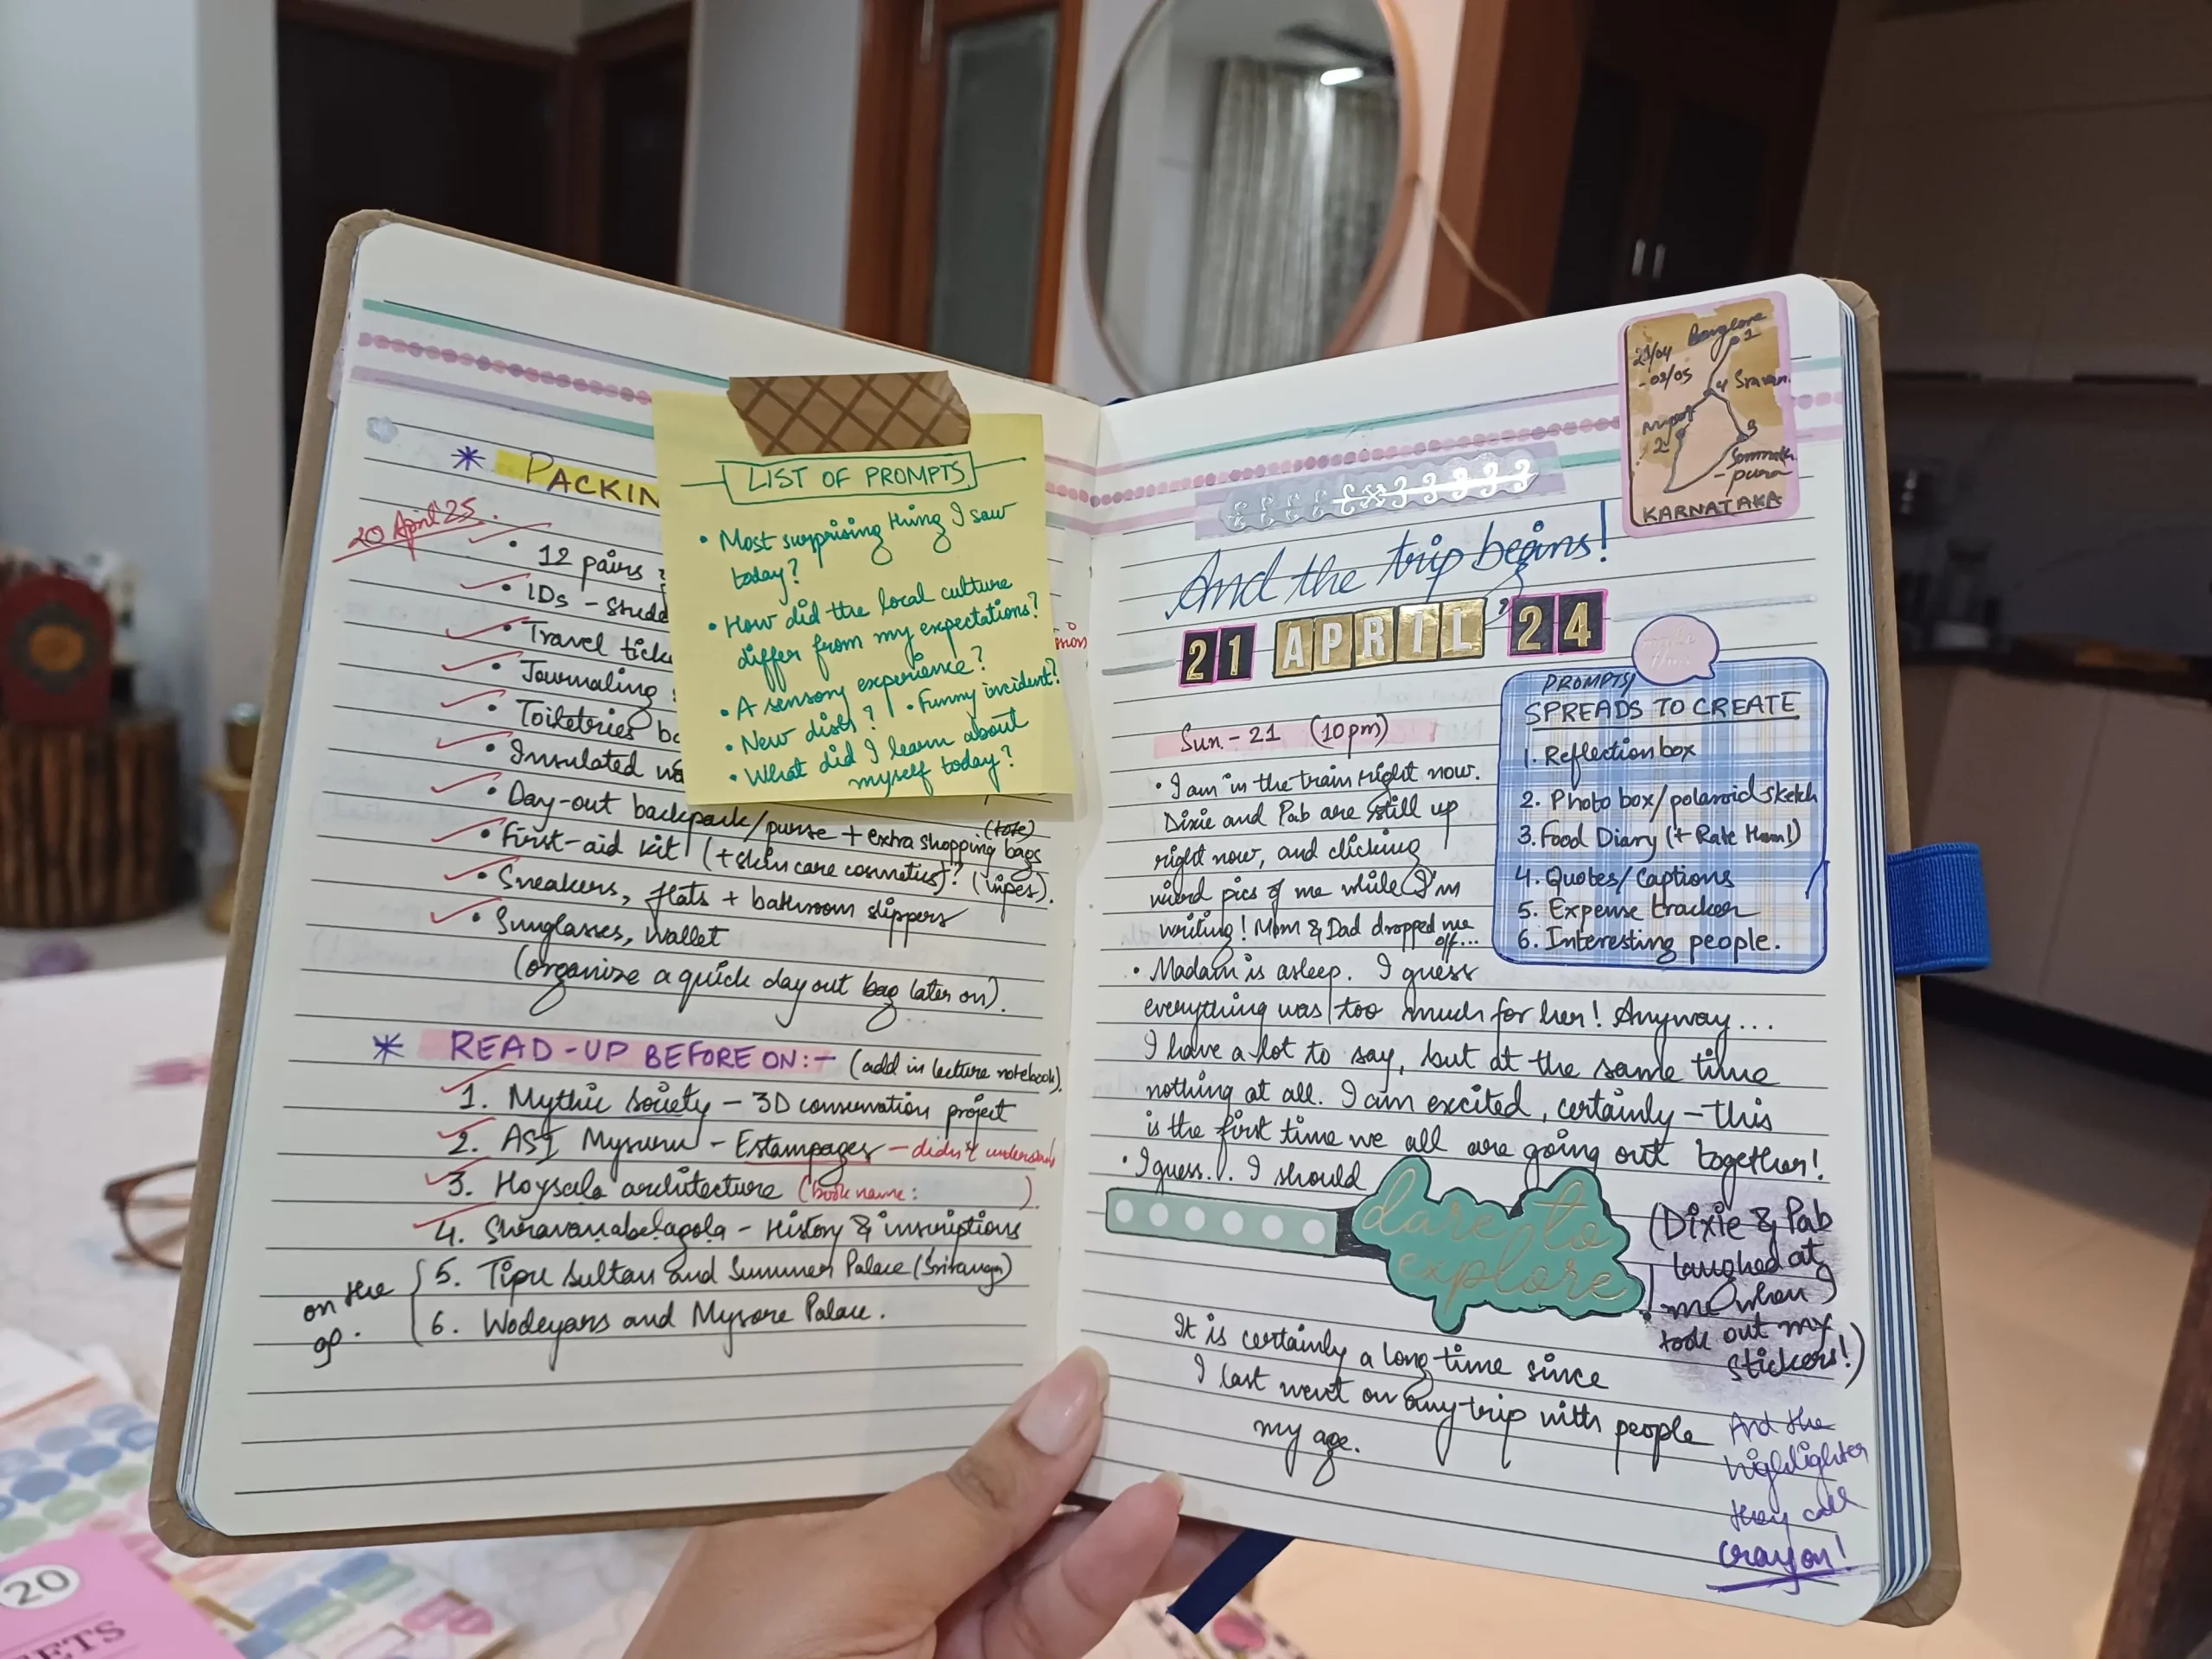 * PACKIN
20 April 25.
• 12 pairs
• IDs - Stude
• Travel tick
• Journaling
• Toiletries b
• Insulated
• Day-out backpack/purse + extra shopping bags
(tote)
• First-aid kit (+ skin care cosmetics)? (wipes).
• Sneakers, flats + bathroom slippers
• Sunglasses, wallet
(organize a quick day out bag later on).
* READ-UP BEFORE ON:- (add in lecture notebook).
1. Mythic Society - 3D conservation project
2. ASI Mysuru - Estampages - didn't understand
3. Hoysala architecture (book name: ).
4. Shravanabelagola - History & inscriptions
on the go.
5. Tipu Sultan and Summer Palace (Srirangan)
6. Wodeyars and Mysore Palace.
LIST OF PROMPTS
• Most surprising thing I saw
today?
• How did the local culture
differ from my expectations?
• A sensory experience?
• New dish? • Funny incident?
• What did I learn about
myself today?
21/04
- 02/05
Banglore
1
4 Sravan.
2
3
Somnath
-pura
KARNATAKA
And the trip begins!
21 APRIL '24
Sun - 21 (10pm)
• I am in the train right now.
Dixie and Pab are still up
right now, and clicking
wierd pics of me while I'm
writing! Mom & Dad dropped me
off...
• Madam is asleep. I guess
everything was too much for her! Anyway...
I have a lot to say, but at the same time
nothing at all. I am excited, certainly - this
is the first time we all are going out together!
• I guess... I should
dare to
explore
!
(Dixie & Pab
laughed at
me when I
took out my
stickers!)
It is certainly a long time since
I last went on any trip with people
my age.
And the
highlighter
they call
crayon!
PROMPTS/
SPREADS TO CREATE
1. Reflection box
2. Photo box/polaroid sketch
3. Food Diary (+ Rate them!)
4. Quotes/Captions
5. Expense tracker
6. Interesting people.
20
EETS